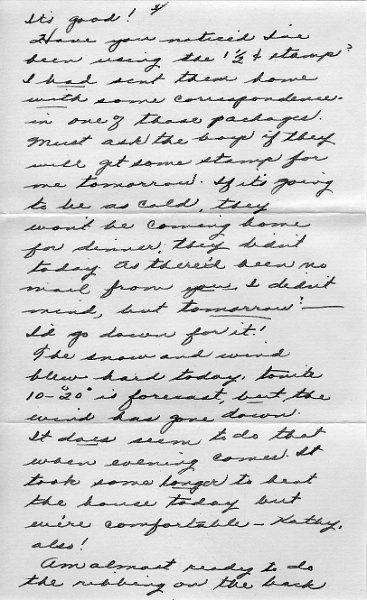 It's good! 4/
Have you noticed I've
been using the 1½ ¢ stamp?
I had sent them home
with some correspondence
in one of those packages.
Must ask the boys if they
will get some stamp for
me tomorrow. If it's going
to be as cold, they
won't be coming home
for dinner, they didn't
today. As there'd been no
mail from you, I didn't
mind, but tomorrow! —
I'd go down for it!
The snow and wind
blew hard today, tonite
10-20° is forecast, but the
wind has gone down.
It does seem to do that
when evening comes. It
took some longer to heat
the house today but
we're comfortable — Kathy,
also!
Am almost ready to do
the ribbing on the back